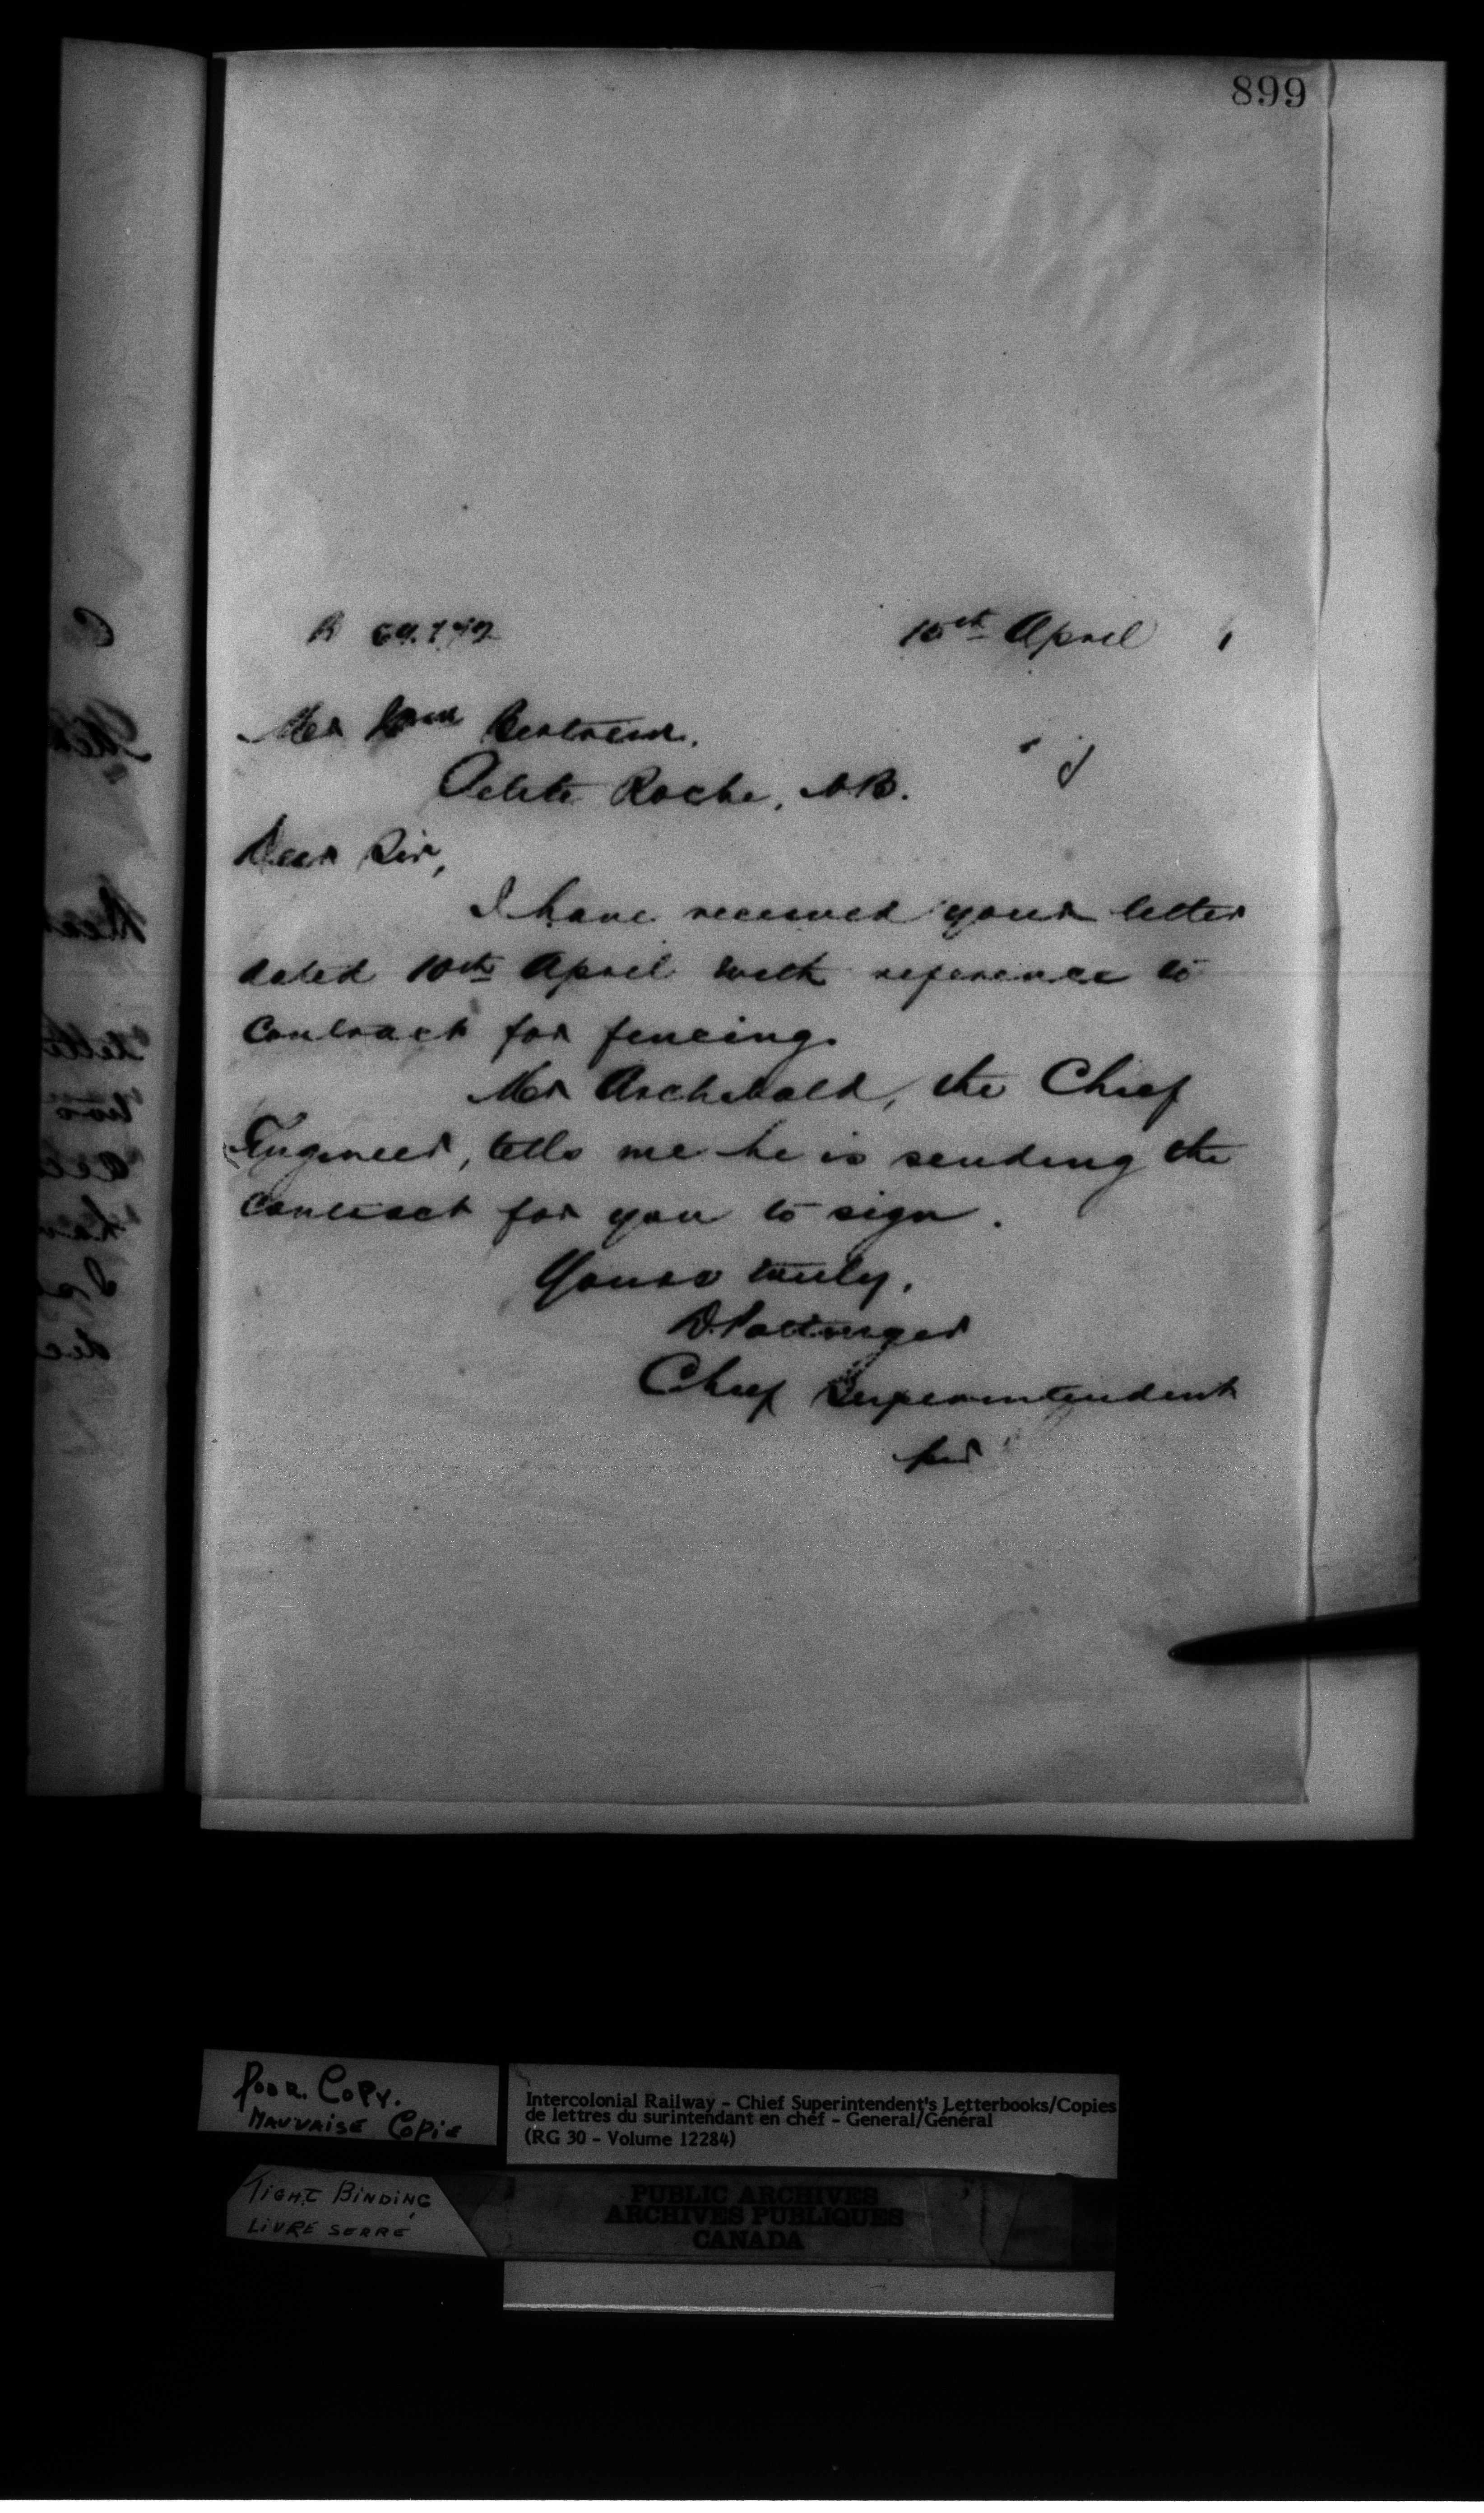 899
15th April
Mr Wm Bertrand.
Petite Roche, N.B.
Dear Sir,
I have received your letter
dated 10th April with reference to
Contract for fencing.
Mr Archibald, the Chief
Engineer, tells me he is sending the
contract for you to sign.
Yours truly,
D. Pottinger
Chief Superintendent
per
POOR COPY.
MAUVAISE COPIE
Intercolonial Railway - Chief Superintendent's Letterbooks/Copies
de lettres du surintendant en chef - General/Général
(RG 30 - Volume 12284)
TIGHT BINDING
LIVRE SERRÉ
PUBLIC ARCHIVES
ARCHIVES PUBLIQUES
CANADA